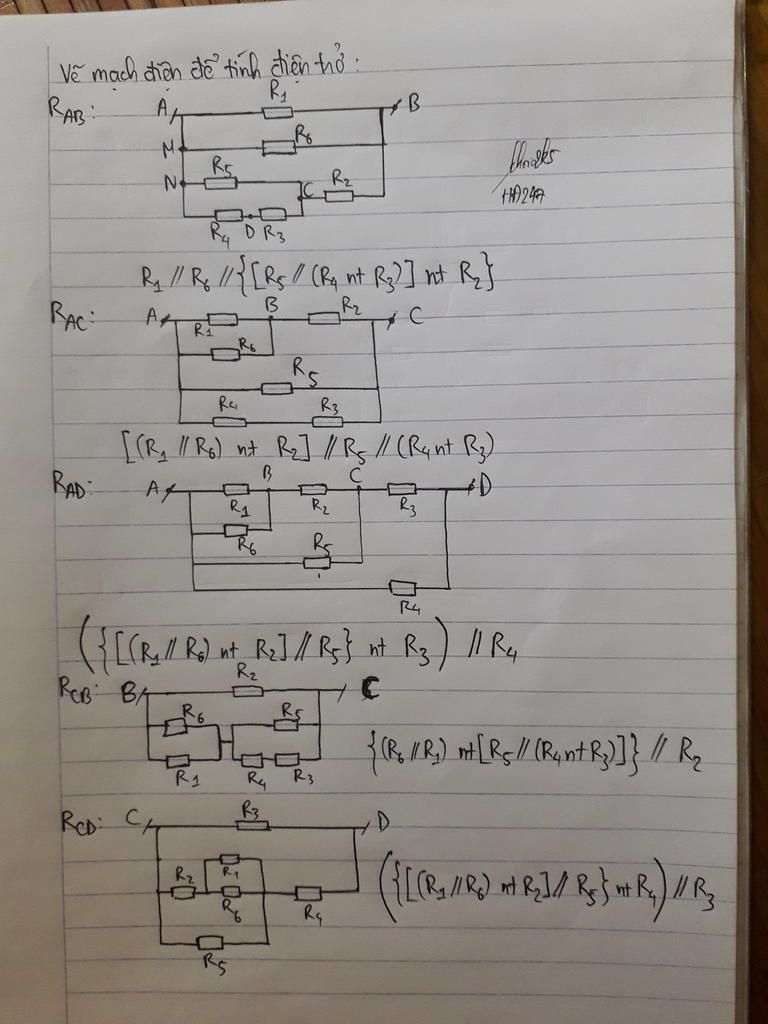 Vẽ mạch điện để tính điện trở:
R_AB: A R1 B
M R6
N R5 C R2
R4 D R3
HĐ247
R1 // R6 // {[R5 // (R4 nt R3)] nt R2}
R_AC: A R1 B R2 C
R6
R5
R4 R3
[(R1 // R6) nt R2] // R5 // (R4 nt R3)
R_AD: A R1 B R2 C R3 D
R6 R5
R4
({[(R1 // R6) nt R2] // R5} nt R3) // R4
R_CB: B R2 C
R6 R5
R1 R4 R3
{(R6 // R1) nt [R5 // (R4 nt R3)]} // R2
R_CD: C R3 D
R2 R1
R6 R4
R5
({[(R1 // R6) nt R2] // R5} nt R4) // R3